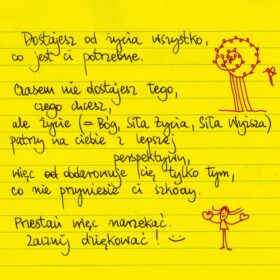 Dostajesz od życia wszystko,
co jest ci potrzebne.
Czasem nie dostajesz tego,
czego chcesz,
ale życie (= Bóg, Siła Życia, Siła Wyższa)
patrzy na ciebie z lepszej
perspektywy,
więc obdarowuje cię tylko tym,
co nie przyniesie ci szkody.
Przestań więc narzekać.
Zacznij dziękować! :)